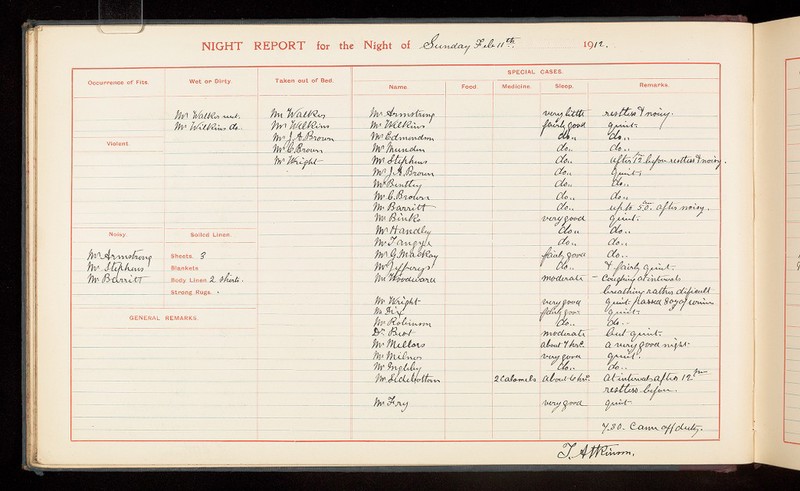 NIGHT REPORT for the Night of Sunday Feb 11th. 1912.
SPECIAL CASES.
Occurrence of Fits. Wet or Dirty. Taken out of Bed. Name. Food. Medicine. Sleep. Remarks.
Mr Walker wet. Mr Walker Mr Armstrong very little restless & noisy.
Mr Wilkins do. Mr Wilkins Mr Wilkins fairly good quiet.
Mr J. A. Brown Mr Edmondson do.. do..
Violent. Mr C. Brown Mr Munden do.. do..
Mr Wright Mr Stephens do.. after 12. before restless & noisy.
Mr J. A. Brown do.. quiet.
Mr Bentley do.. do..
Mr C. Brown do.. do..
Mr Barritt do.. up to 5.0. after noisy.
Mr Binks very good quiet.
Noisy. Soiled Linen. Mr Handley do.. do..
Mr Tangye do.. do..
Mr Armstrong Sheets. 3 Mr G. MacKay fairly good do..
Mr Stephens Blankets Mr Jefferys do.. & fairly quiet.
Mr Barritt Body Linen 2 shirts. Mr Woodward moderate - Coughing at intervals
Strong Rugs. breathing rather difficult
Mr Wright very good quiet. passed 8oz of urine
GENERAL REMARKS. Mr Fix fairly good quiet.
Mr Robinson do.. do..
Dr Biot moderate but quiet.
Mr Mellors about 7 hrs. a very good night.
Mr Milner very good quiet.
Mr Ingleby do.. do..
Mr Sidebottom 2 Calomels about 4 hrs. at intervals after 12
restless before.
Mr Fry very good quiet.
7.30. Came off duty.
T. Atkinson.